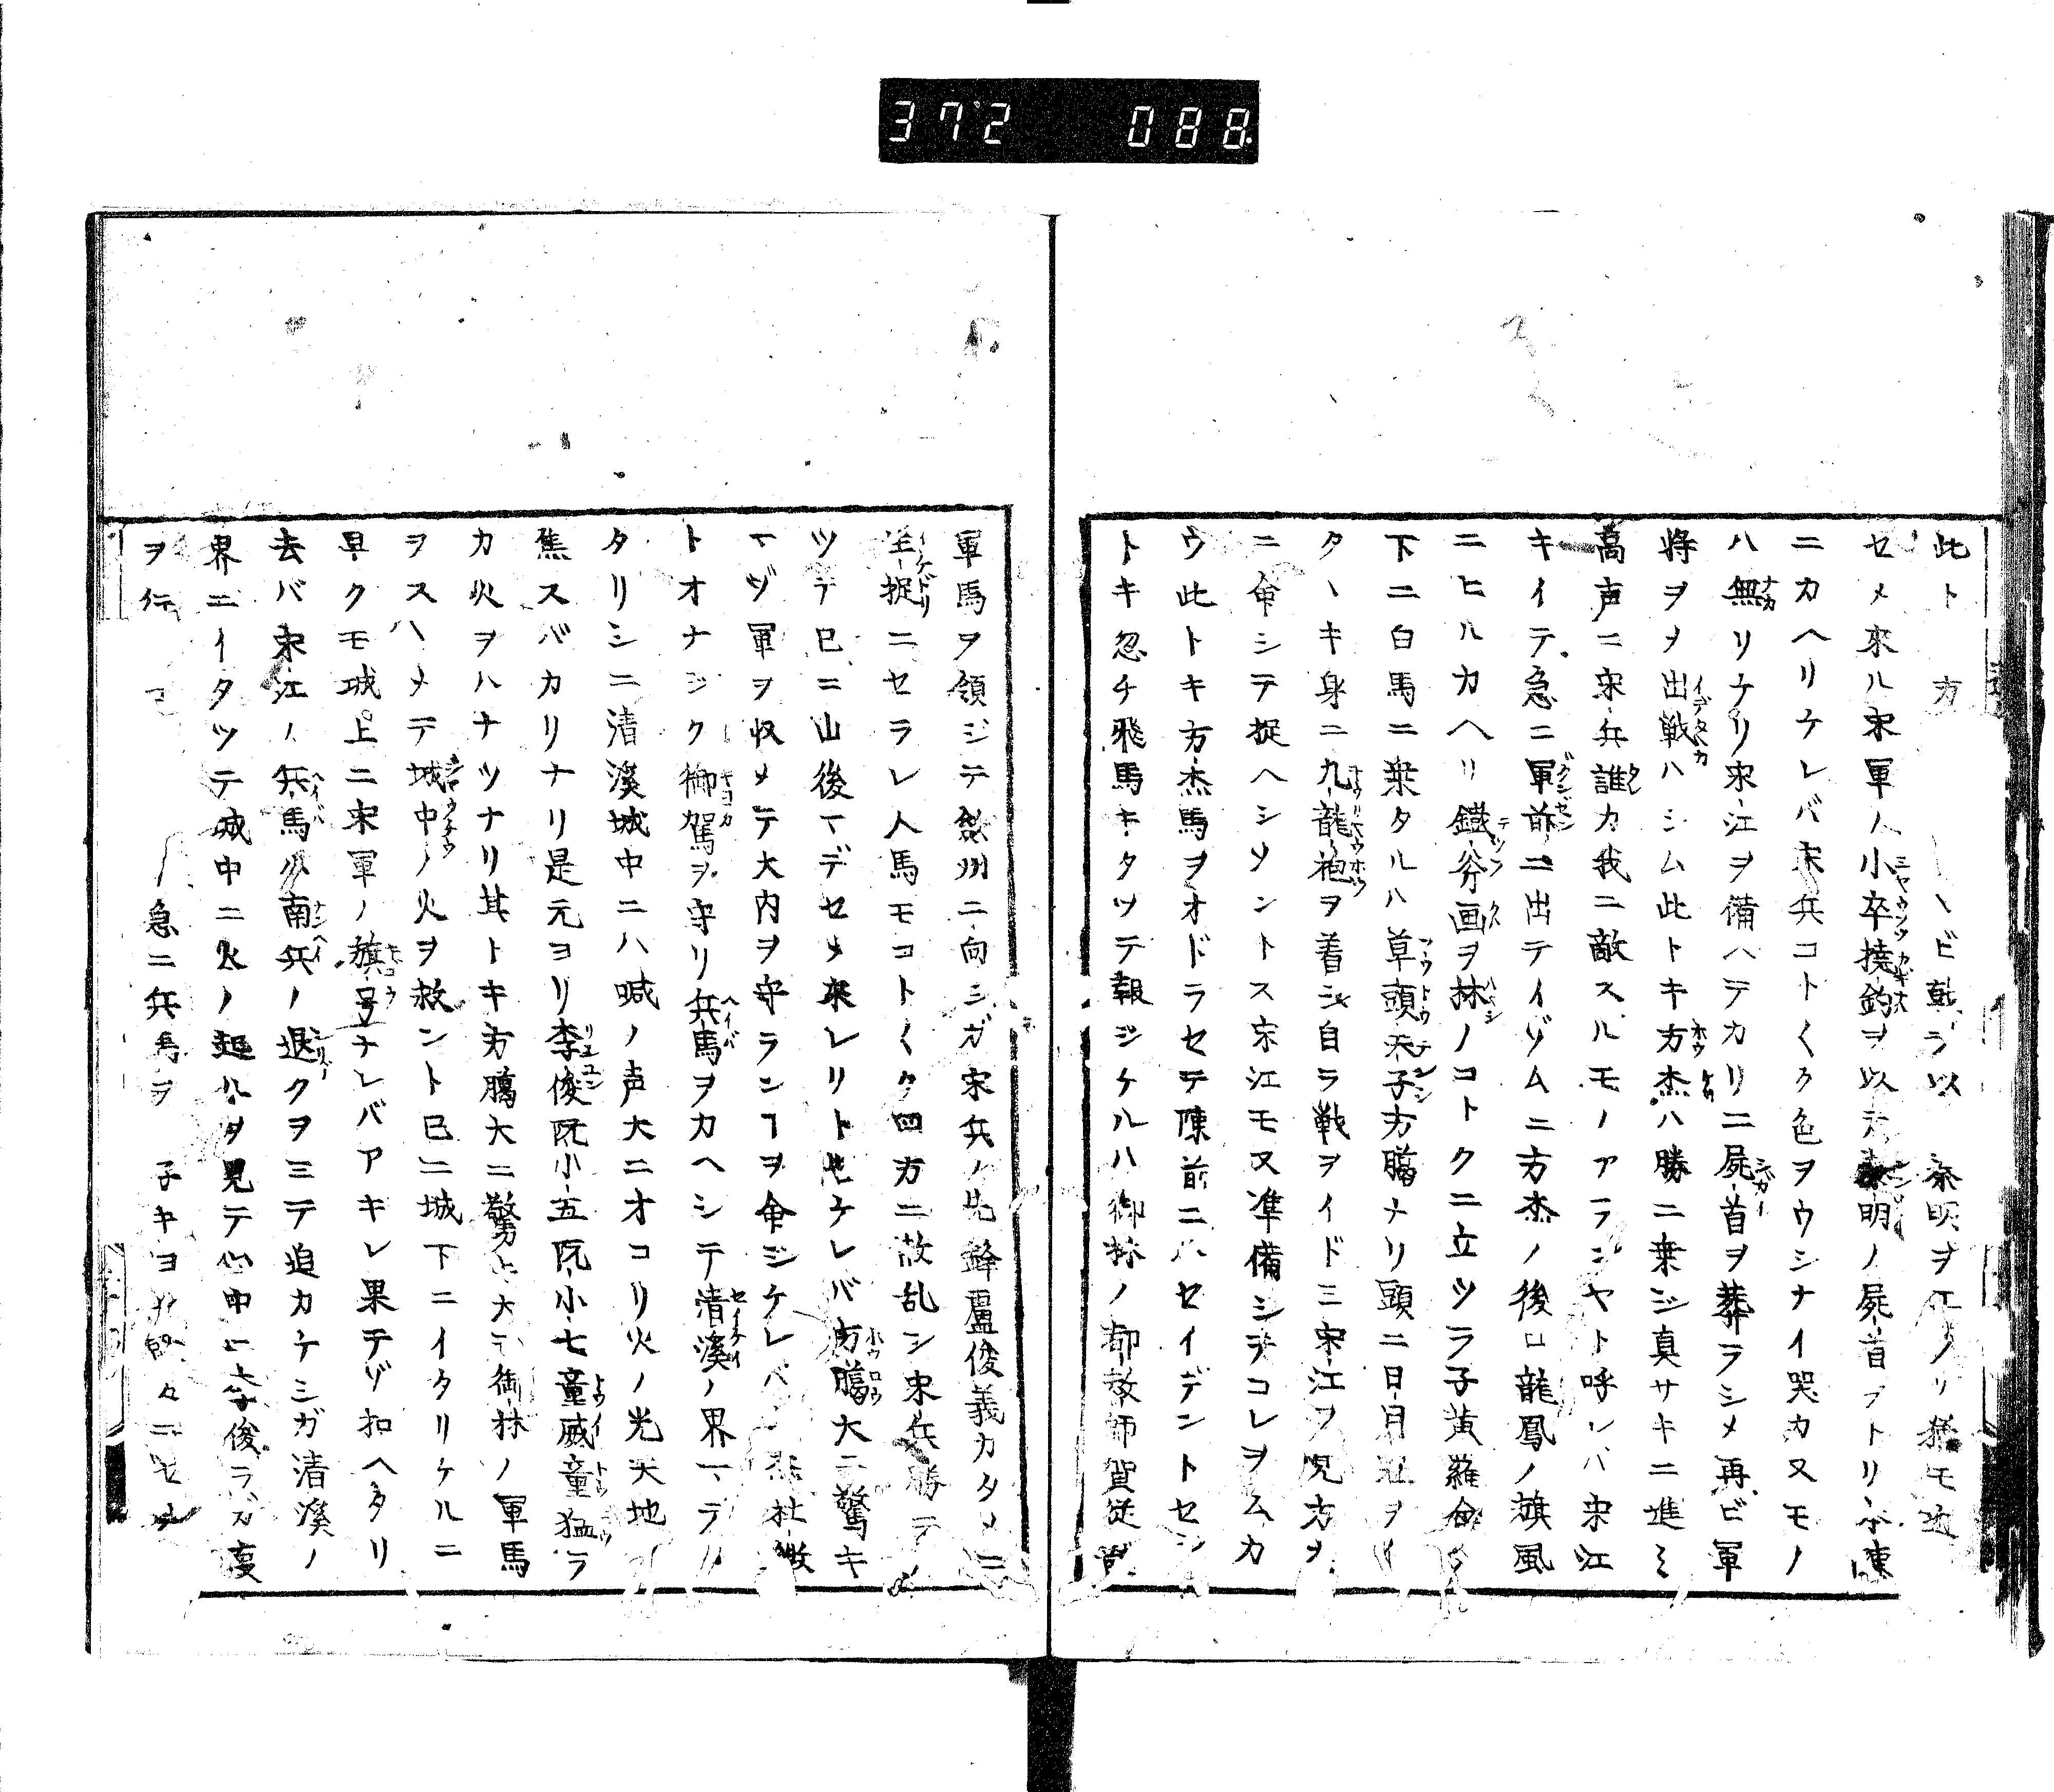 372 088
此ト 方 ヽビ戟ヲ以 秦明ヲ
セメ來ル宋軍ノ小卒撓鈎ヲ以テ秦明ノ屍首ヲトリ本陳
ニカヘリケレバ宋兵コト〱ク色ヲウシナイ哭カヌモノ
ハ無リケリ宋江ヲ備ヘテカリニ屍首ヲ葬ラシメ再ビ軍
將ヲメ出戦ハシム此トキ方杰ハ勝ニ乗ジ真サキニ進ミ
高声ニ宋兵誰カ我ニ敵スルモノアラシヤト呼レバ宋江
キイテ急ニ軍前ニ出テイゾムニ方杰ノ後ロ龍鳳ノ旗風
ニヒルカヘリ鐵斧画ヲ林ノコトクニ立ツラ子黄羅傘ノ
下ニ白馬ニ乗タルハ草頭天子方臈ナリ頭ニ日月冠ヲイ
タヽキ身ニ九龍袍ヲ着シ自ラ戦ヲイドミ宋江ヲ児方ヲ
ニ命シテ捉ヘシメントス宋江モ又準備シテコレヲムカ
ウ此トキ方杰馬ヲオドラセテ陳前ニハセイデントセシ
トキ忽チ飛馬キタツテ報ジケルハ御林ノ都教師賀従龍
軍馬ヲ領ジテ歙州ニ向シガ宋兵ノ先鋒盧俊義カタメニ
生捉ニセラレ人馬モコト〱ク四方ニ散乱シ宋兵勝テノ
ツテ已ニ山後マデセメ來レリト也ケレバ方臈大ニ驚キ
マヅ軍ヲ収メテ大内ヲ守ランヿヲ命ジケレバ 杜微
トオナシク御駕ヲ守リ兵馬ヲカヘシテ清溪ノ界マテ
タリシニ清溪城中ニハ喊ノ声大ニオコリ火ノ光天地
焦スバカリナリ是元ヨリ李俊阮小五阮小七童威童猛ラ
カ火ヲハナツナリ其トキ方臈大ニ驚キ大テ御林ノ軍馬
ヲスヽメテ城中ノ火ヲ救ント已ニ城下ニイタリケルニ
早クモ城上ニ宋軍ノ旗号ナレバアキレ果テゾ扣ヘタリ
去バ宋江ノ兵馬ハ南兵ノ退クヲミテ追カケシガ清溪ノ
界ニイタツテ城中ニ火ノ起ルヲ見テ心中ニ李俊ラガ変
ヲ行 急ニ兵馬ヲ